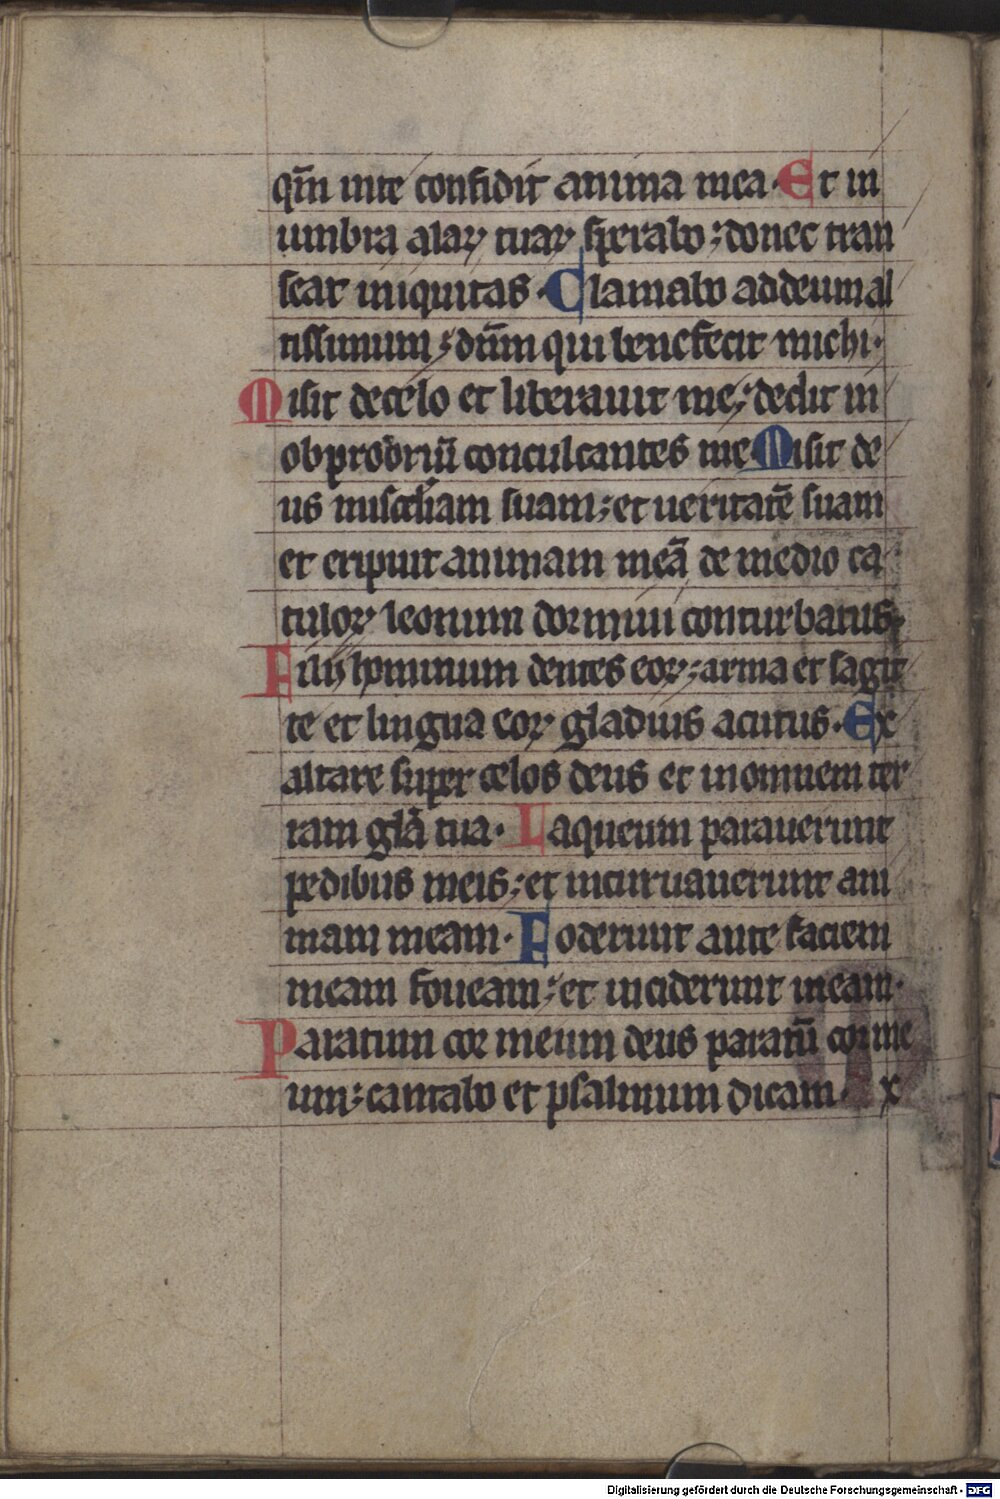 qm̄ inte confidit anima mea· Et in
umbra alaꝝ tuaꝝ sperabo; donec tran
seat iniquitas· Clamabo addeum al
tissimum; dn̄m qui benefecit michi·
Misit decelo et liberauit me; dedit in
obprobriū conculcantes me Misit de
us miscd̄iam suam; et ueritatē suam
et eripuit animam meā de medio ca
tuloꝝ leonum dormiui conturbatus·
Filij hominum dentes eoꝝ; arma et sagit
te et lingua eoꝝ gladius acutus· Ex
altare super celos deus et inomnem ter
ram glā tua· Laqueum parauerunt
pedibus meis; et incuruauerunt ani
mam meam· Foderunt ante faciem
meam foueam; et inciderunt ineam·
Paratum cor meum deus paratū cor me
um; cantabo et psalmum dicam· x
Digitalisierung gefördert durch die Deutsche Forschungsgemeinschaft - DFG